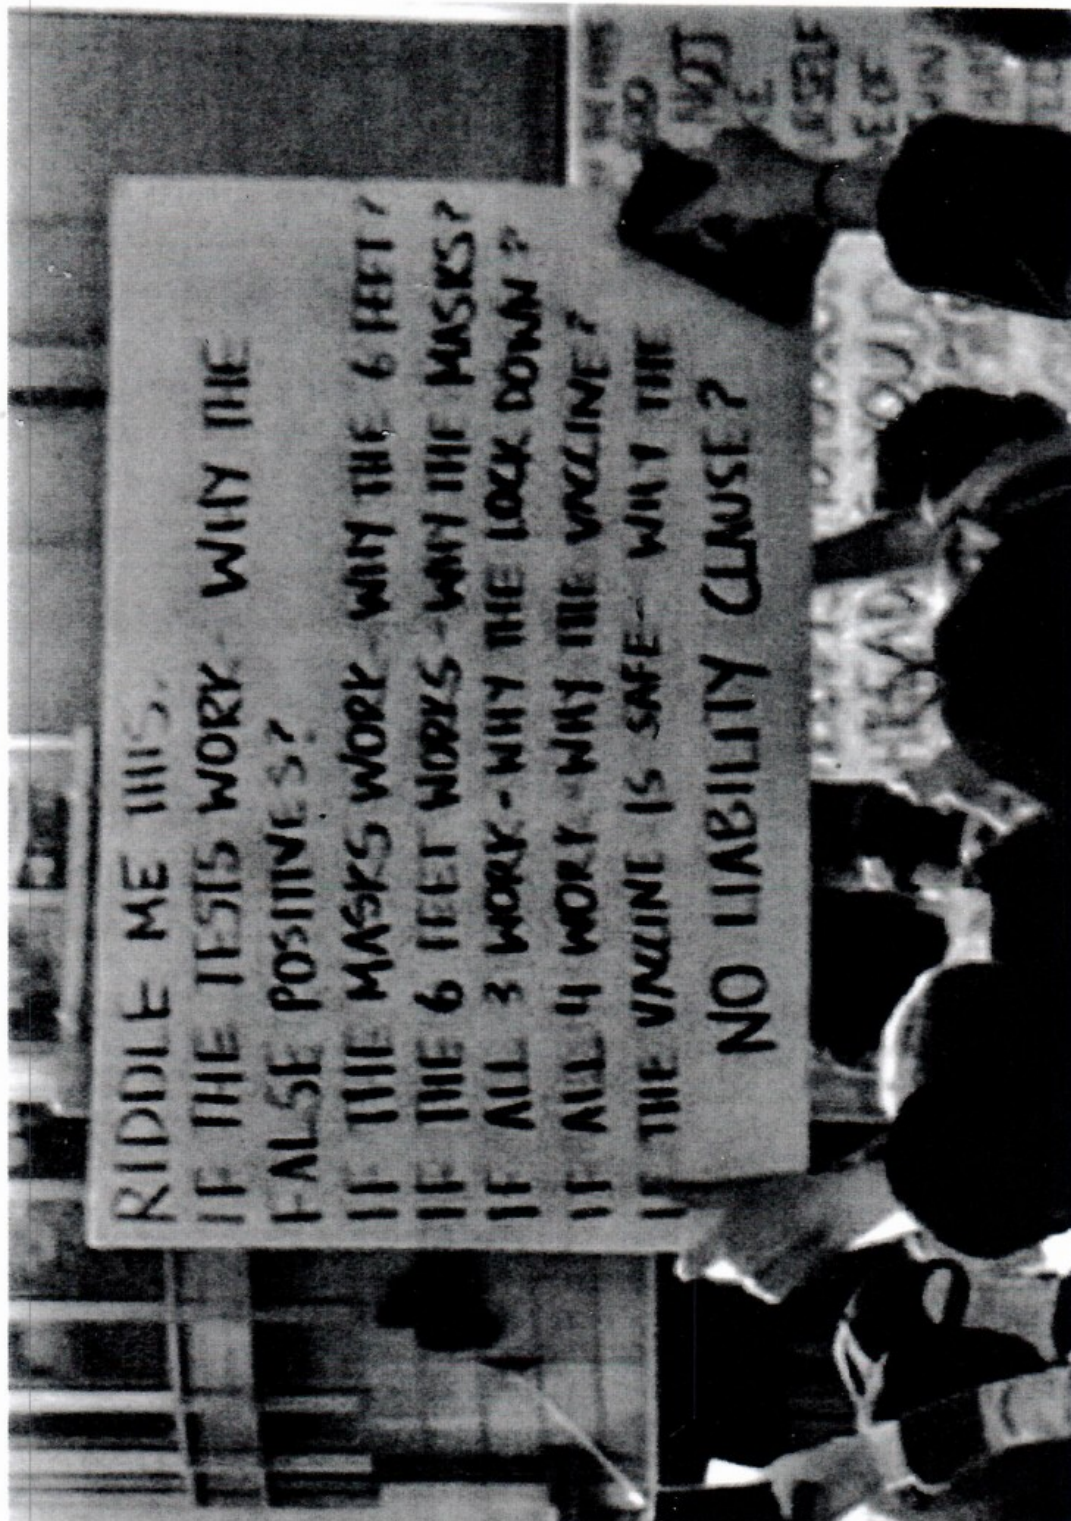 RIDDLE ME THIS,
IF THE TESTS WORK - WHY THE
FALSE POSITIVES?
IF THE MASKS WORK - WHY THE 6 FEET?
IF THE 6 FEET WORKS - WHY THE MASKS?
IF ALL 3 WORK - WHY THE LOCK DOWN?
IF ALL 4 WORK - WHY THE VACCINE?
IF THE VACCINE IS SAFE - WHY THE
NO LIABILITY CLAUSE?
NOT
YOU